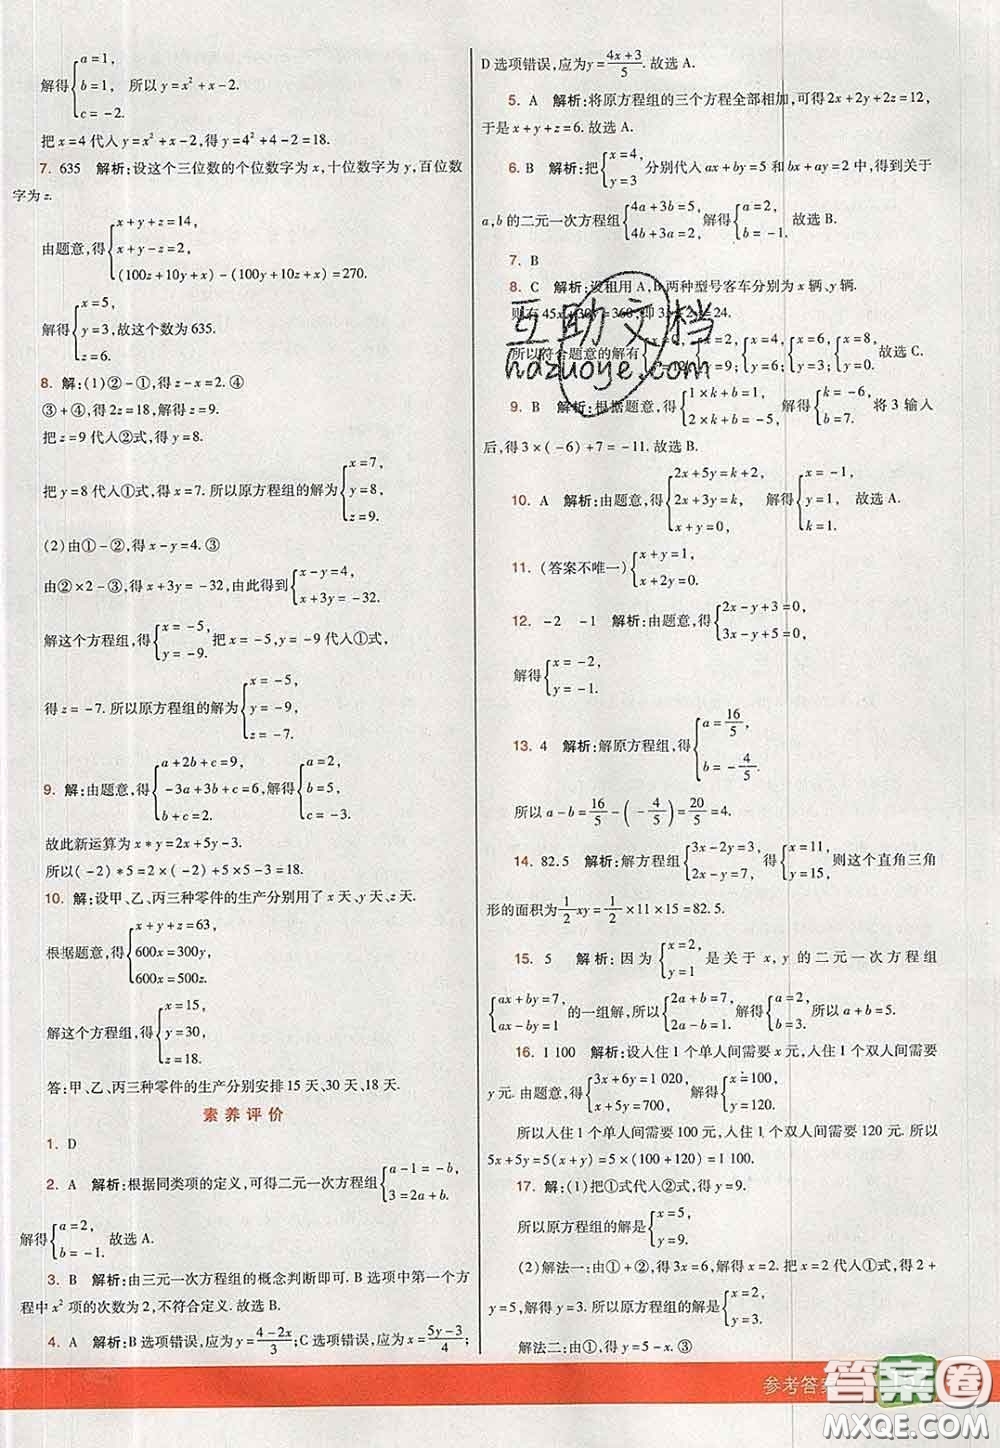 解得{a=1, b=1, c=-2. 所以 y=x²+x-2.
把 x=4 代入 y=x²+x-2,得 y=4²+4-2=18.
7. 635 解析:设这个三位数的个位数字为 x,十位数字为 y,百位数
字为 z.
由题意,得{x+y+z=14, x+y-z=2, (100z+10y+x)-(100x+10y+z)=270.
解得{x=5, y=3, z=6. 故这个数为 635.
8. 解:(1)②-①,得 z-x=2. ④
③+④,得 2z=18,解得 z=9.
把 z=9 代入②式,得 y=8.
把 y=8 代入①式,得 x=7. 所以原方程组的解为{x=7, y=8, z=9.
(2)由①-②,得 x-y=4. ③
由②×2-③,得 x+3y=-32. 由此得到{x-y=4, x+3y=-32.
解这个方程组,得{x=-5, y=-9. 把 x=-5,y=-9 代入①式,
得 z=-7. 所以原方程组的解为{x=-5, y=-9, z=-7.
9. 解:由题意,得{a+2b+c=9, -3a+3b+c=6, b+c=2. 解得{a=2, b=5, c=-3.
故此新运算为 x*y=2x+5y-3.
所以(-2)*5=2×(-2)+5×5-3=18.
10. 解:设甲、乙、丙三种零件的生产分别用了 x 天、y 天、z 天.
根据题意,得{x+y+z=63, 600x=300y, 600x=500z.
解这个方程组,得{x=15, y=30, z=18.
答:甲、乙、丙三种零件的生产分别安排 15 天、30 天、18 天.
素养评价
1. D
2. A 解析:根据同类项的定义,可得二元一次方程组{a-1=-b, 3=2a+b.
解得{a=2, b=-1. 故选 A.
3. B 解析:由三元一次方程组的概念判断即可. B 选项中第一个方
程中 x² 项的次数为 2,不符合定义. 故选 B.
4. A 解析:B 选项错误,应为 y=(4-2x)/3;C 选项错误,应为 x=(5y-3)/4;
D 选项错误,应为 y=(4x+3)/5. 故选 A.
5. A 解析:将原方程组的三个方程全部相加,可得 2x+2y+2z=12,
于是 x+y+z=6. 故选 A.
6. B 解析:把{x=4, y=3 分别代入 ax+by=5 和 bx+ay=2 中,得到关于
a,b 的二元一次方程组{4a+3b=5, 4b+3a=2. 解得{a=2, b=-1. 故选 B.
7. B
8. C 解析:设租用 A,B 两种型号客车分别为 x 辆、y 辆.
则有 45x+30y=360,即 3x+2y=24.
所以符合题意的解有 {x=2, y=9; {x=4, y=6; {x=6, y=3; {x=8, y=0. 故选 C.
9. B 解析:根据题意,得{1×k+b=1, 2×k+b=-5, 解得{k=-6, b=7. 将 3 输入
后,得 3×(-6)+7=-11. 故选 B.
10. A 解析:由题意,得{2x+5y=k+2, 2x+3y=k, x+y=0, 解得{x=-1, y=1, k=1. 故选 A.
11. (答案不唯一){x+y=1, x+2y=0.
12. -2 -1 解析:由题意,得{2x-y+3=0, 3x-y+5=0.
解得{x=-2, y=-1.
13. 4 解析:解原方程组,得{a=16/5, b=-4/5.
所以 a-b=16/5-(-4/5)=20/5=4.
14. 82.5 解析:解方程组{3x-2y=3, 2x-y=7, 得{x=11, y=15. 则这个直角三角
形的面积为 1/2 xy=1/2×11×15=82.5.
15. 5 解析:因为{x=2, y=1 是关于 x,y 的二元一次方程组
{ax+by=7, ax-by=1 的一组解,所以{2a+b=7, 2a-b=1. 解得{a=2, b=3. 所以 a+b=5.
16. 1 100 解析:设入住 1 个单人间需要 x 元,入住 1 个双人间需要
y 元. 由题意,得{3x+6y=1 020, x+5y=700, 解得{x=100, y=120.
所以入住 1 个单人间需要 100 元,入住 1 个双人间要 120 元. 所以
5x+5y=5(x+y)=5×(100+120)=1 100.
17. 解:(1)把①式代入②式,得 y=9.
所以原方程组的解是{x=5, y=9.
(2)解法一:由①+②,得 3x=6,解得 x=2. 把 x=2 代入①式,得 2+
y=5,解得 y=3. 所以原方程组的解是{x=2, y=3.
解法二:由①,得 y=5-x. ③
参考答案
答案圈
MXQE.COM
互助文档
hdzuoye.com